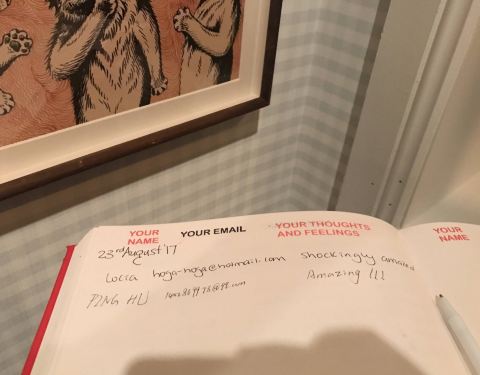 YOUR NAME YOUR EMAIL YOUR THOUGHTS AND FEELINGS YOUR NAME
23rd August '17
hoga-hoga@hotmail.com Shockingly
PING HU Amazing !!!